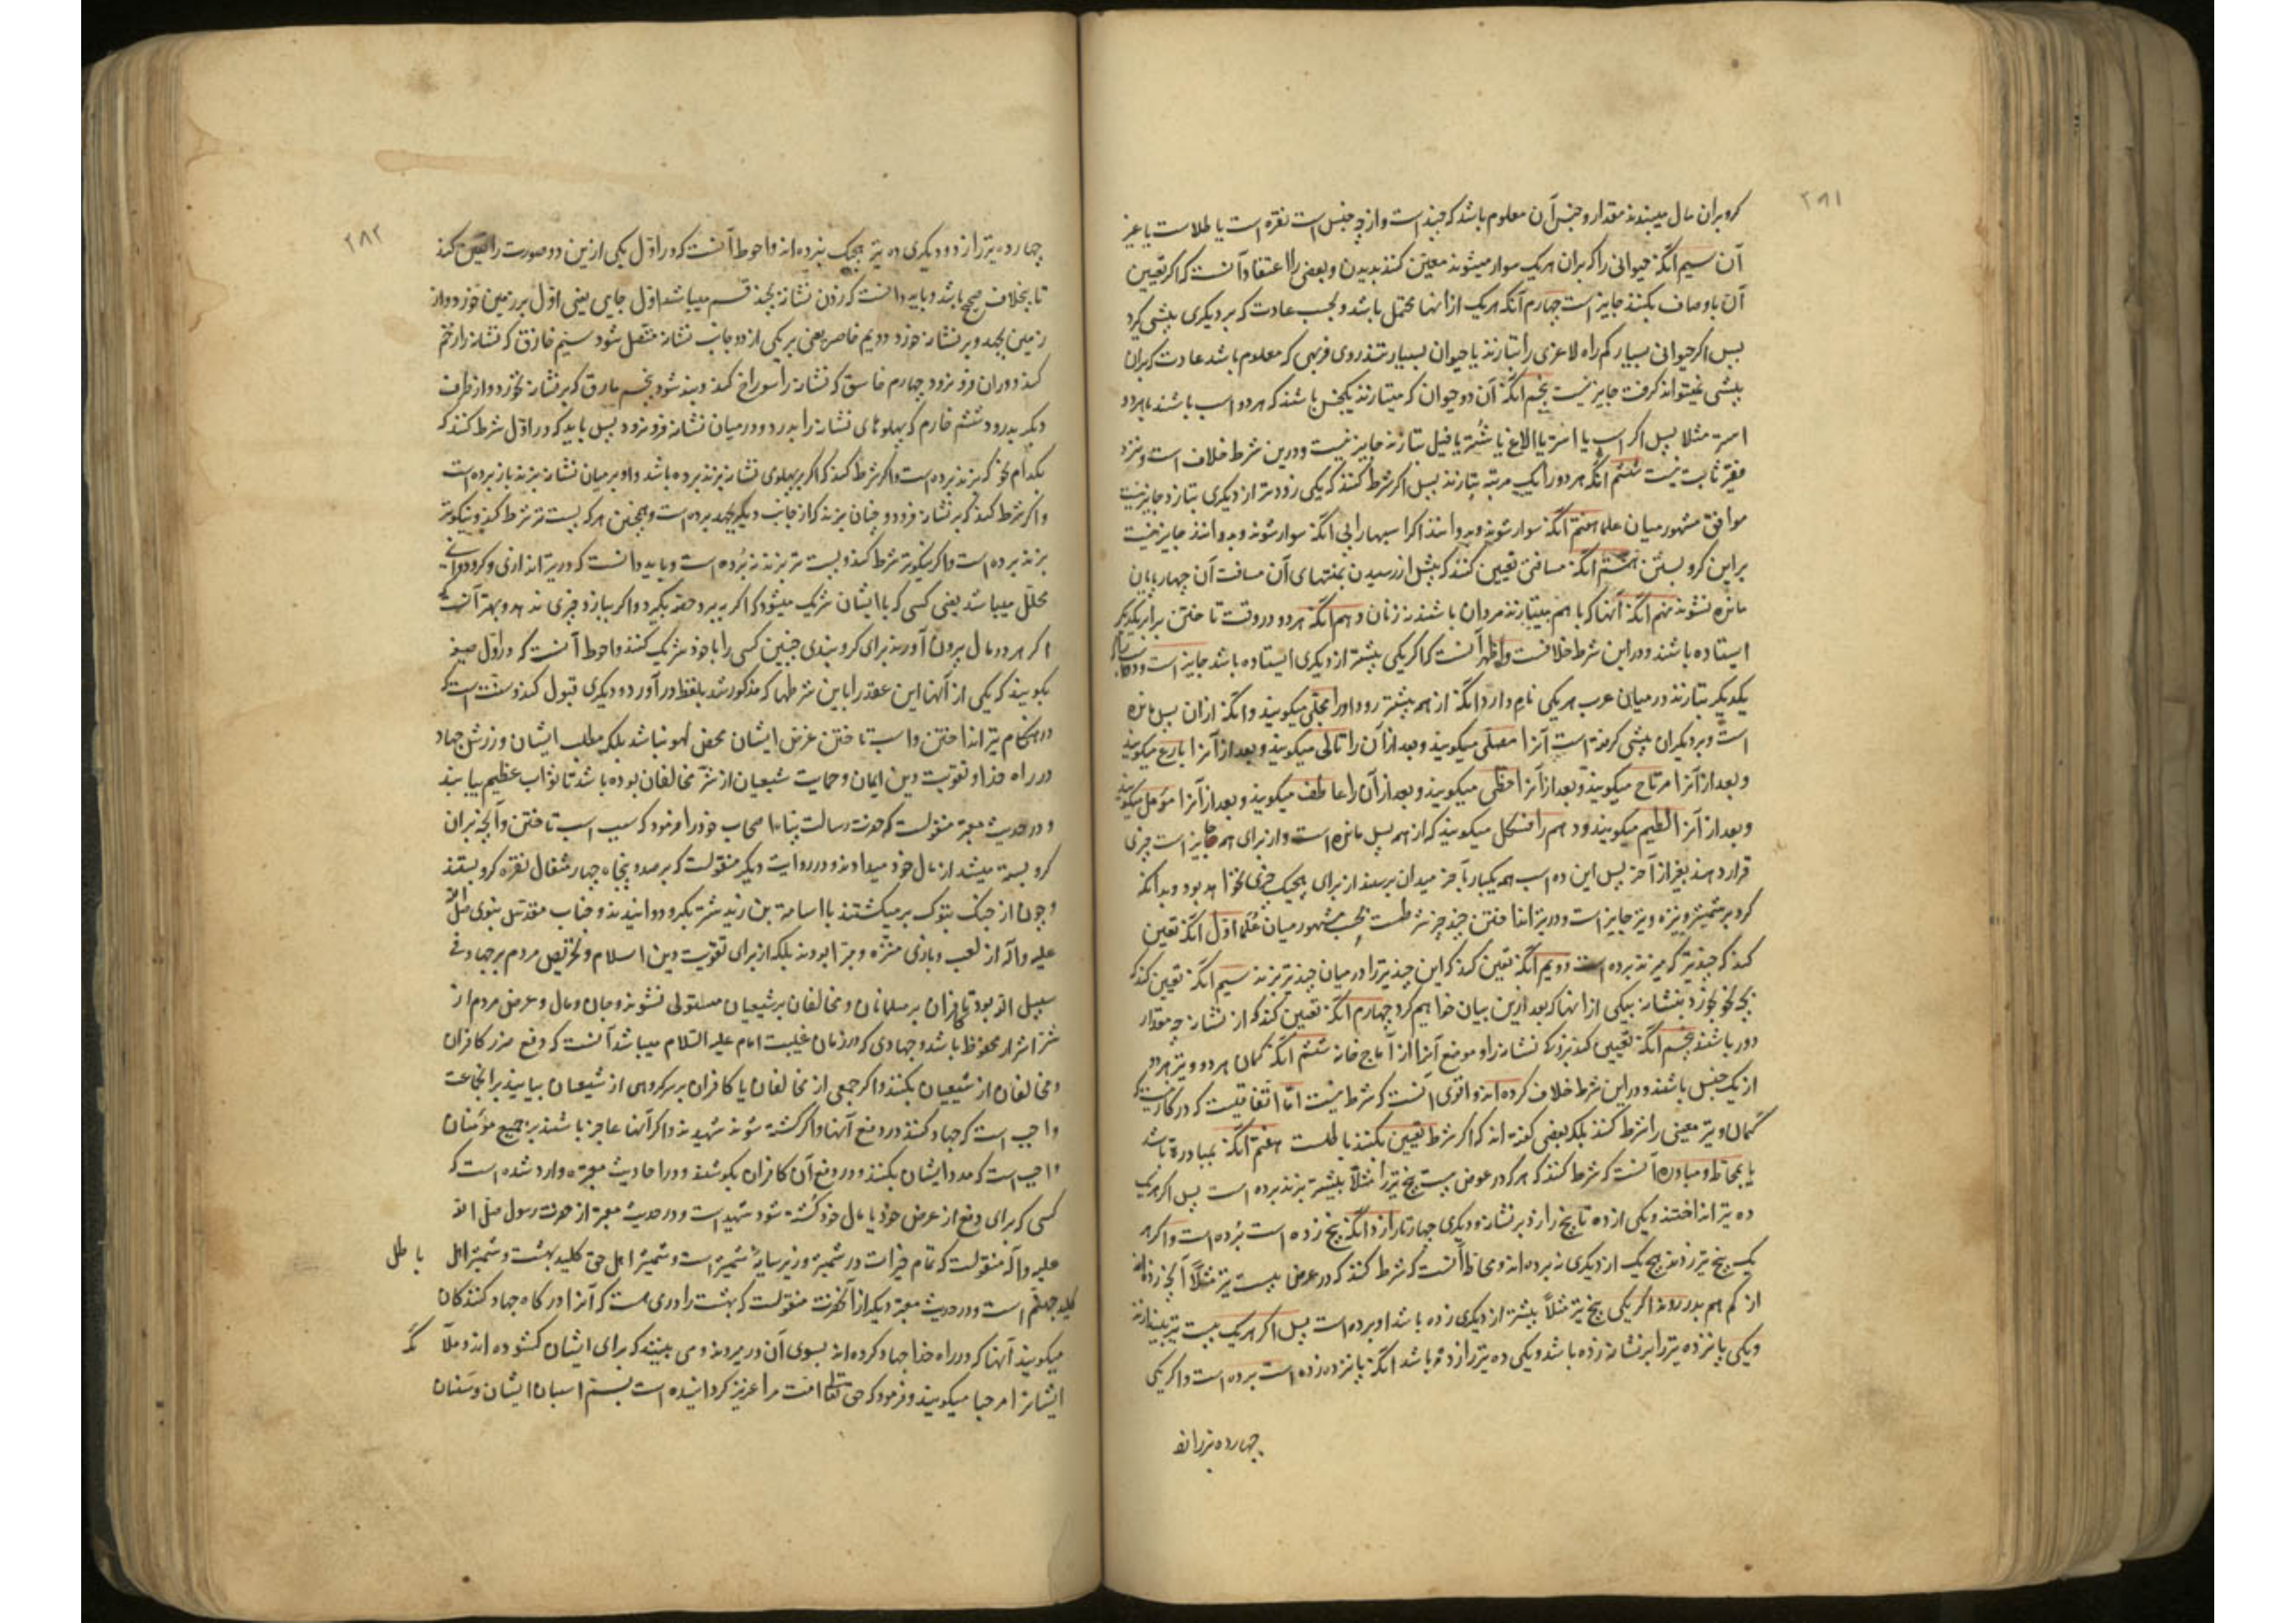 ۲۸۱
گرو بران مال میبندند مقدار و جنس آن معلوم باشد که چند است و از چه جنس است نقره است یا طلاست یا غیر
آن سیم آنکه حیوانی را که بران هریک سوار میشوند معین کنند بدیدن و بعضی را اعتقاد آنست که اگر تعیین
آن باوصاف بکنند جایز است چهارم آنکه هریک از انها محتمل باشد و بحسب عادت که بر دیگری پیشی گیرد
پس اگر حیوانی بسیار کم راه لاغری را بتازند با حیوان بسیار تندروی فربهی که معلوم باشد عادت که بران
پیشی نمیتواند گرفت جایز نیست پنجم آنکه آن دو حیوان که میتازند یکجنس باشند که هر دو اسب باشند یا هر دو
استر مثلا پس اگر اسب با استر یا الاغ یا شتر یا فیل بتازند جایز نیست و درین شرط خلاف است و نزد
فقیر ثابت نیست ششم آنکه هر دو را یک مرتبه بتازند پس اگر شرط کنند که یکی زودتر از دیگری بتازد جایز نیست
موافق مشهور میان علما هفتم آنکه سوار شوند و بدوانند اگر اسبها را بی آنکه سوار شوند و بدوانند جایز نیست
براین گرو بستن هشتم آنکه مسافتی تعیین کنند که پیش از رسیدن بمنتهای آن مسافت آن چهارپایان
مانده نشوند نهم آنکه آنها که با هم میتازند مردان باشند نه زنان دهم آنکه هر دو در وقت تاختن برابر یکدیگر
ایستاده باشند و در این شرط خلافست و اظهر آنست که اگر یکی پیشتر از دیگری ایستاده باشد جایز است و ده اسب که با
یکدیگر بتازند در میان عرب هر یکی نام دارد آنکه از همه پیشتر رود او را مجلی میگویند و آنکه ازان پس مانده
است و بر دیگران پیشی گرفته است آنرا مصلی میگویند و بعد از آن را تالی میگویند و بعد از آنرا بارع میگویند
و بعد از آنرا مرتاح میگویند و بعد از آنرا حظی میگویند و بعد از آن را عاطف میگویند و بعد از آنرا مؤمل میگویند
و بعد از آنرا لطیم میگویند و دهم را فسکل میگویند که از همه پس مانده است و از برای همه جایز است چیزی
قرار دهند بغیر از آخر پس این ده اسب همه یکبار بآخر میدان برسند از برای هیچیک چیزی نخواهد بود و بدانکه
گرو بر شمشیر و نیزه و تیر جایز است و در تیر انداختن چند چیز شرطست بحسب مشهور میان علما اول آنکه تعیین
کنند که چند تیر که میزند برده است دویم آنکه تعیین کنند که این چند تیر را در میان چند تیر بزند سیم آنکه تعیین کنند که
بچه نحو بخورد بنشانه بیکی از انها که بعد ازین بیان خواهیم کرد چهارم آنکه تعیین کنند که از نشانه چه مقدار
دور باشند پنجم آنکه تعیین کنند بزرگی نشانه را و موضع آنرا از آماج خانه ششم آنکه کمان هر دو و تیر هر دو
از یک جنس باشند و در این شرط خلاف کرده اند و اقوی آنست که شرط نیست اما اتفاقیست که در کار نیست که
کمان و تیر معینی را شرط کنند بلکه بعضی گفته اند که اگر شرط تعیین بکنند باطلست هفتم آنکه بمبادره باشد
یا بمحاطه و مبادره آنست که شرط کنند که هر که در عوض بیست پنج تیر را مثلاً پیشتر بزند برده است پس اگر هر یک
ده تیر انداختند و یکی از ده تا پنج را زد بر نشانه و دیگری چهار تا را زد آنکه پنج زده است برده است و اگر هر
یک پنج تیر زدند هیچ یک از دیگری نبرده اند و محاطه آنست که شرط کنند که در عوض بیست تیر مثلاً آنچه زده اند
از کم هم بدر روند اگر یکی پنج تیر مثلاً بیشتر از دیگری زده باشد او برده است پس اگر هر یک بیست تیر بیندازند
و یکی پانزده تیر را بر نشانه زده باشد و یکی ده تیر را زده باشد آنکه پانزده زده است برده است و اگر یکی
چهارده تیر را زد
۲۸۲
چهارده تیر را زد و دیگری ده تیر هیچیک نبرده اند و احوط آنست که در اول یکی ازین دو صورت را تعیین کنند
تا بیخلاف صحیح باشد و باید دانست که زدن نشانه بچند قسم میباشد اول جابی یعنی اول بر زمین خورد و از
زمین بجهد و بر نشانه خورد دویم خاصر یعنی بر یکی از دو جانب نشانه متصل شود سیم خازق که نشانه را زخم
کند و دران فرو نرود چهارم خاسق که نشانه را سوراخ کند و بند شود پنجم مارق که بر نشانه بخورد و از طرف
دیگر بدر رود ششم خارم که پهلوهای نشانه را بدرد و در میان نشانه فرو نرود پس باید که در اول شرط کنند که
بکدام نحو که بزند برده است و اگر شرط کنند که اگر بر پهلوی نشانه بزند برده باشد و او بر میان نشانه بزند باز برده است
و اگر شرط کنند که بر نشانه فرو رود و چنان بزند که از جانب دیگر بجهد برده است و همچنین هر که پست تر شرط کنند و نیکوتر
بزند برده است و اگر نیکوتر شرط کنند و پست تر بزند نبرده است و باید دانست که در تیر اندازی و گرو دوانی
محلل میباشد یعنی کسی که با ایشان شریک میشود که اگر ببرد حصه بگیرد و اگر ببازد چیزی ندهد و بهتر آنست که
اگر هر دو مال بیرون آورند برای گروبندی چنین کسی را با خود شریک کنند و احوط آنست که در اول صیغه
بگویند که یکی از آنها این عقد را باین شرطها که مذکور شد بلفظ درآورد و دیگری قبول کند و سنت است که
در هنگام تیر انداختن و اسب تاختن غرض ایشان محض لهو نباشد بلکه مطلب ایشان ورزش جهاد
در راه خدا و تقویت دین ایمان و حمایت شیعیان از شر مخالفان بوده باشد تا ثواب عظیم بیابند
و در حدیث معتبر منقولست که حضرت رسالت پناه اصحاب خود را امر فرمود که سبب اسب تاختن و آنچه بران
گرو بسته میشد از مال خود میدادند و در روایت دیگر منقولست که بر صد و پنجاه چهار مثقال نقره گرو بستند
و چون از جنگ تبوک برمیگشتند با اسامة بن زید شتر بگرو دوانیدند و جناب مقدس نبوی صلی الله
علیه وآله از لعب و بازی منزه و مبرا بودند بلکه از برای تقویت دین اسلام و تحریص مردم بر جهاد فی
سبیل الله بود تا کافران بر مسلمانان و مخالفان بر شیعیان مستولی نشوند و جان و مال و عرض مردم از
شر اشرار محفوظ باشد و جهادی که در زمان غیبت امام علیه السلام میباشد آنست که دفع ضرر کافران
و مخالفان از شیعیان بکنند و اگر جمعی از مخالفان یا کافران بر سر گروهی از شیعیان بیایند بر انجماعت
واجب است که جهاد کنند در دفع آنها و اگر کشته شوند شهیدند و اگر آنها عاجز باشند بر جمیع مؤمنان
واجب است که مدد ایشان بکنند و در دفع آن کافران بکوشند و در احادیث معتبره وارد شده است که
کسی که برای دفع از عرض خود یا مال خود کشته شود شهید است و در حدیث معتبر از حضرت رسول صلی الله
علیه وآله منقولست که تمام خیرات در شمشیر و زیر سایه شمشیر است و شمشیر اهل حق کلید بهشت و شمشیر اهل باطل
کلید جهنم است و در حدیث معتبر دیگر از آنحضرت منقولست که بهشت را دری هست که آنرا درگاه جهاد کنندگان
میگویند آنها که در راه خدا جهاد کرده اند بسوی آن در میروند و می بینند که برای ایشان گشوده اند و ملائکه
ایشانرا مرحبا میگویند و فرمود که حق تعالی امت مرا عزیز گردانیده است بسم اسبان ایشان و سنان